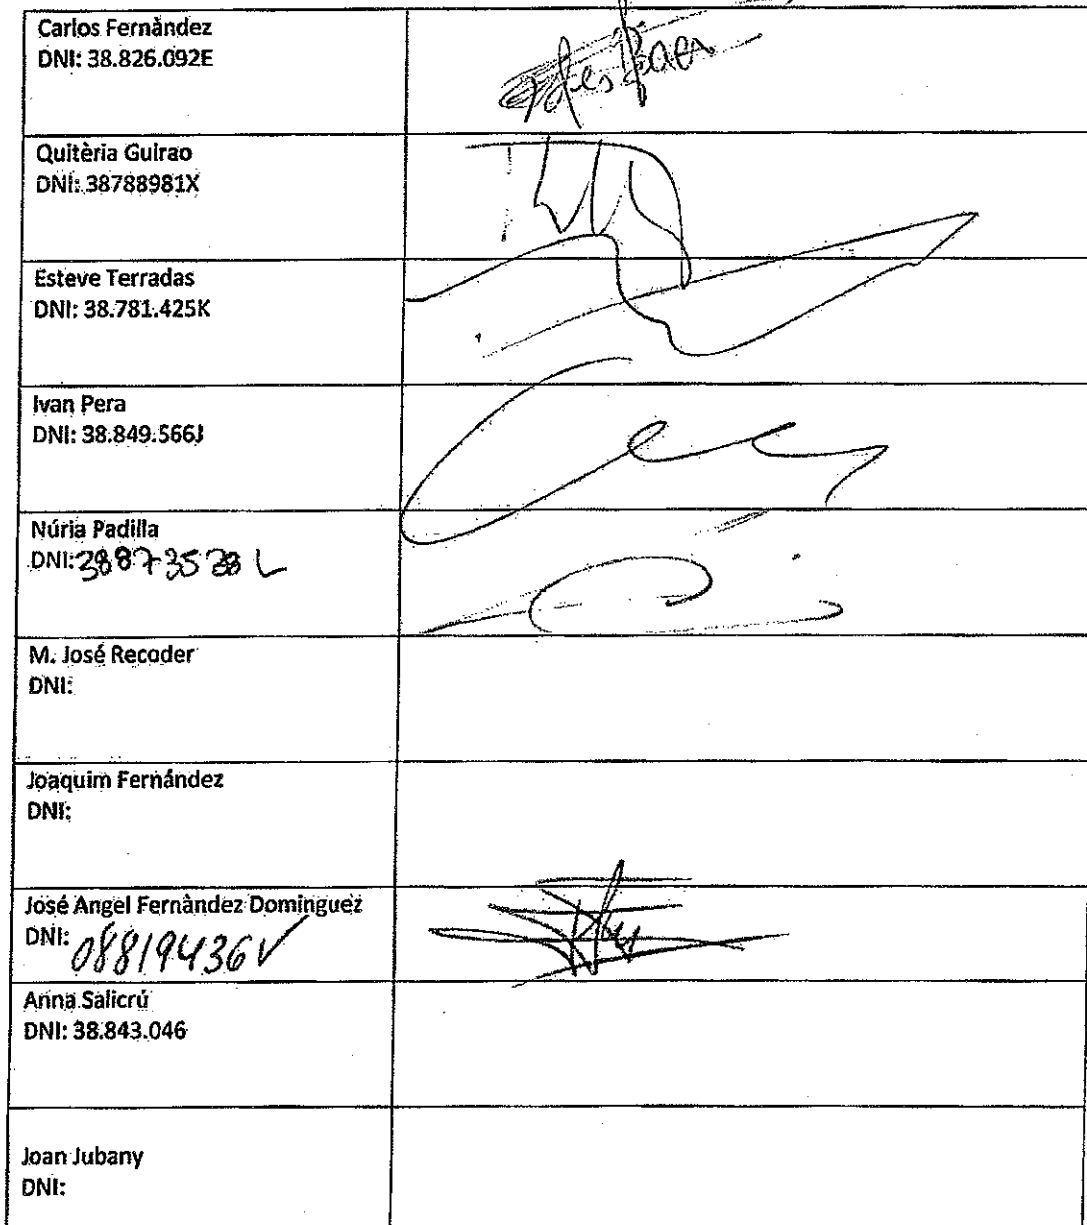 Carlos Fernàndez
DNI: 38.826.092E
Quitèria Guirao
DNI: 38788981X
Esteve Terradas
DNI: 38.781.425K
Ivan Pera
DNI: 38.849.566J
Núria Padilla
DNI: 38873538L
M. José Recoder
DNI:
Joaquim Fernández
DNI:
José Angel Fernàndez Dominguez
DNI: 08819436V
Anna Salicrú
DNI: 38.843.046
Joan Jubany
DNI: